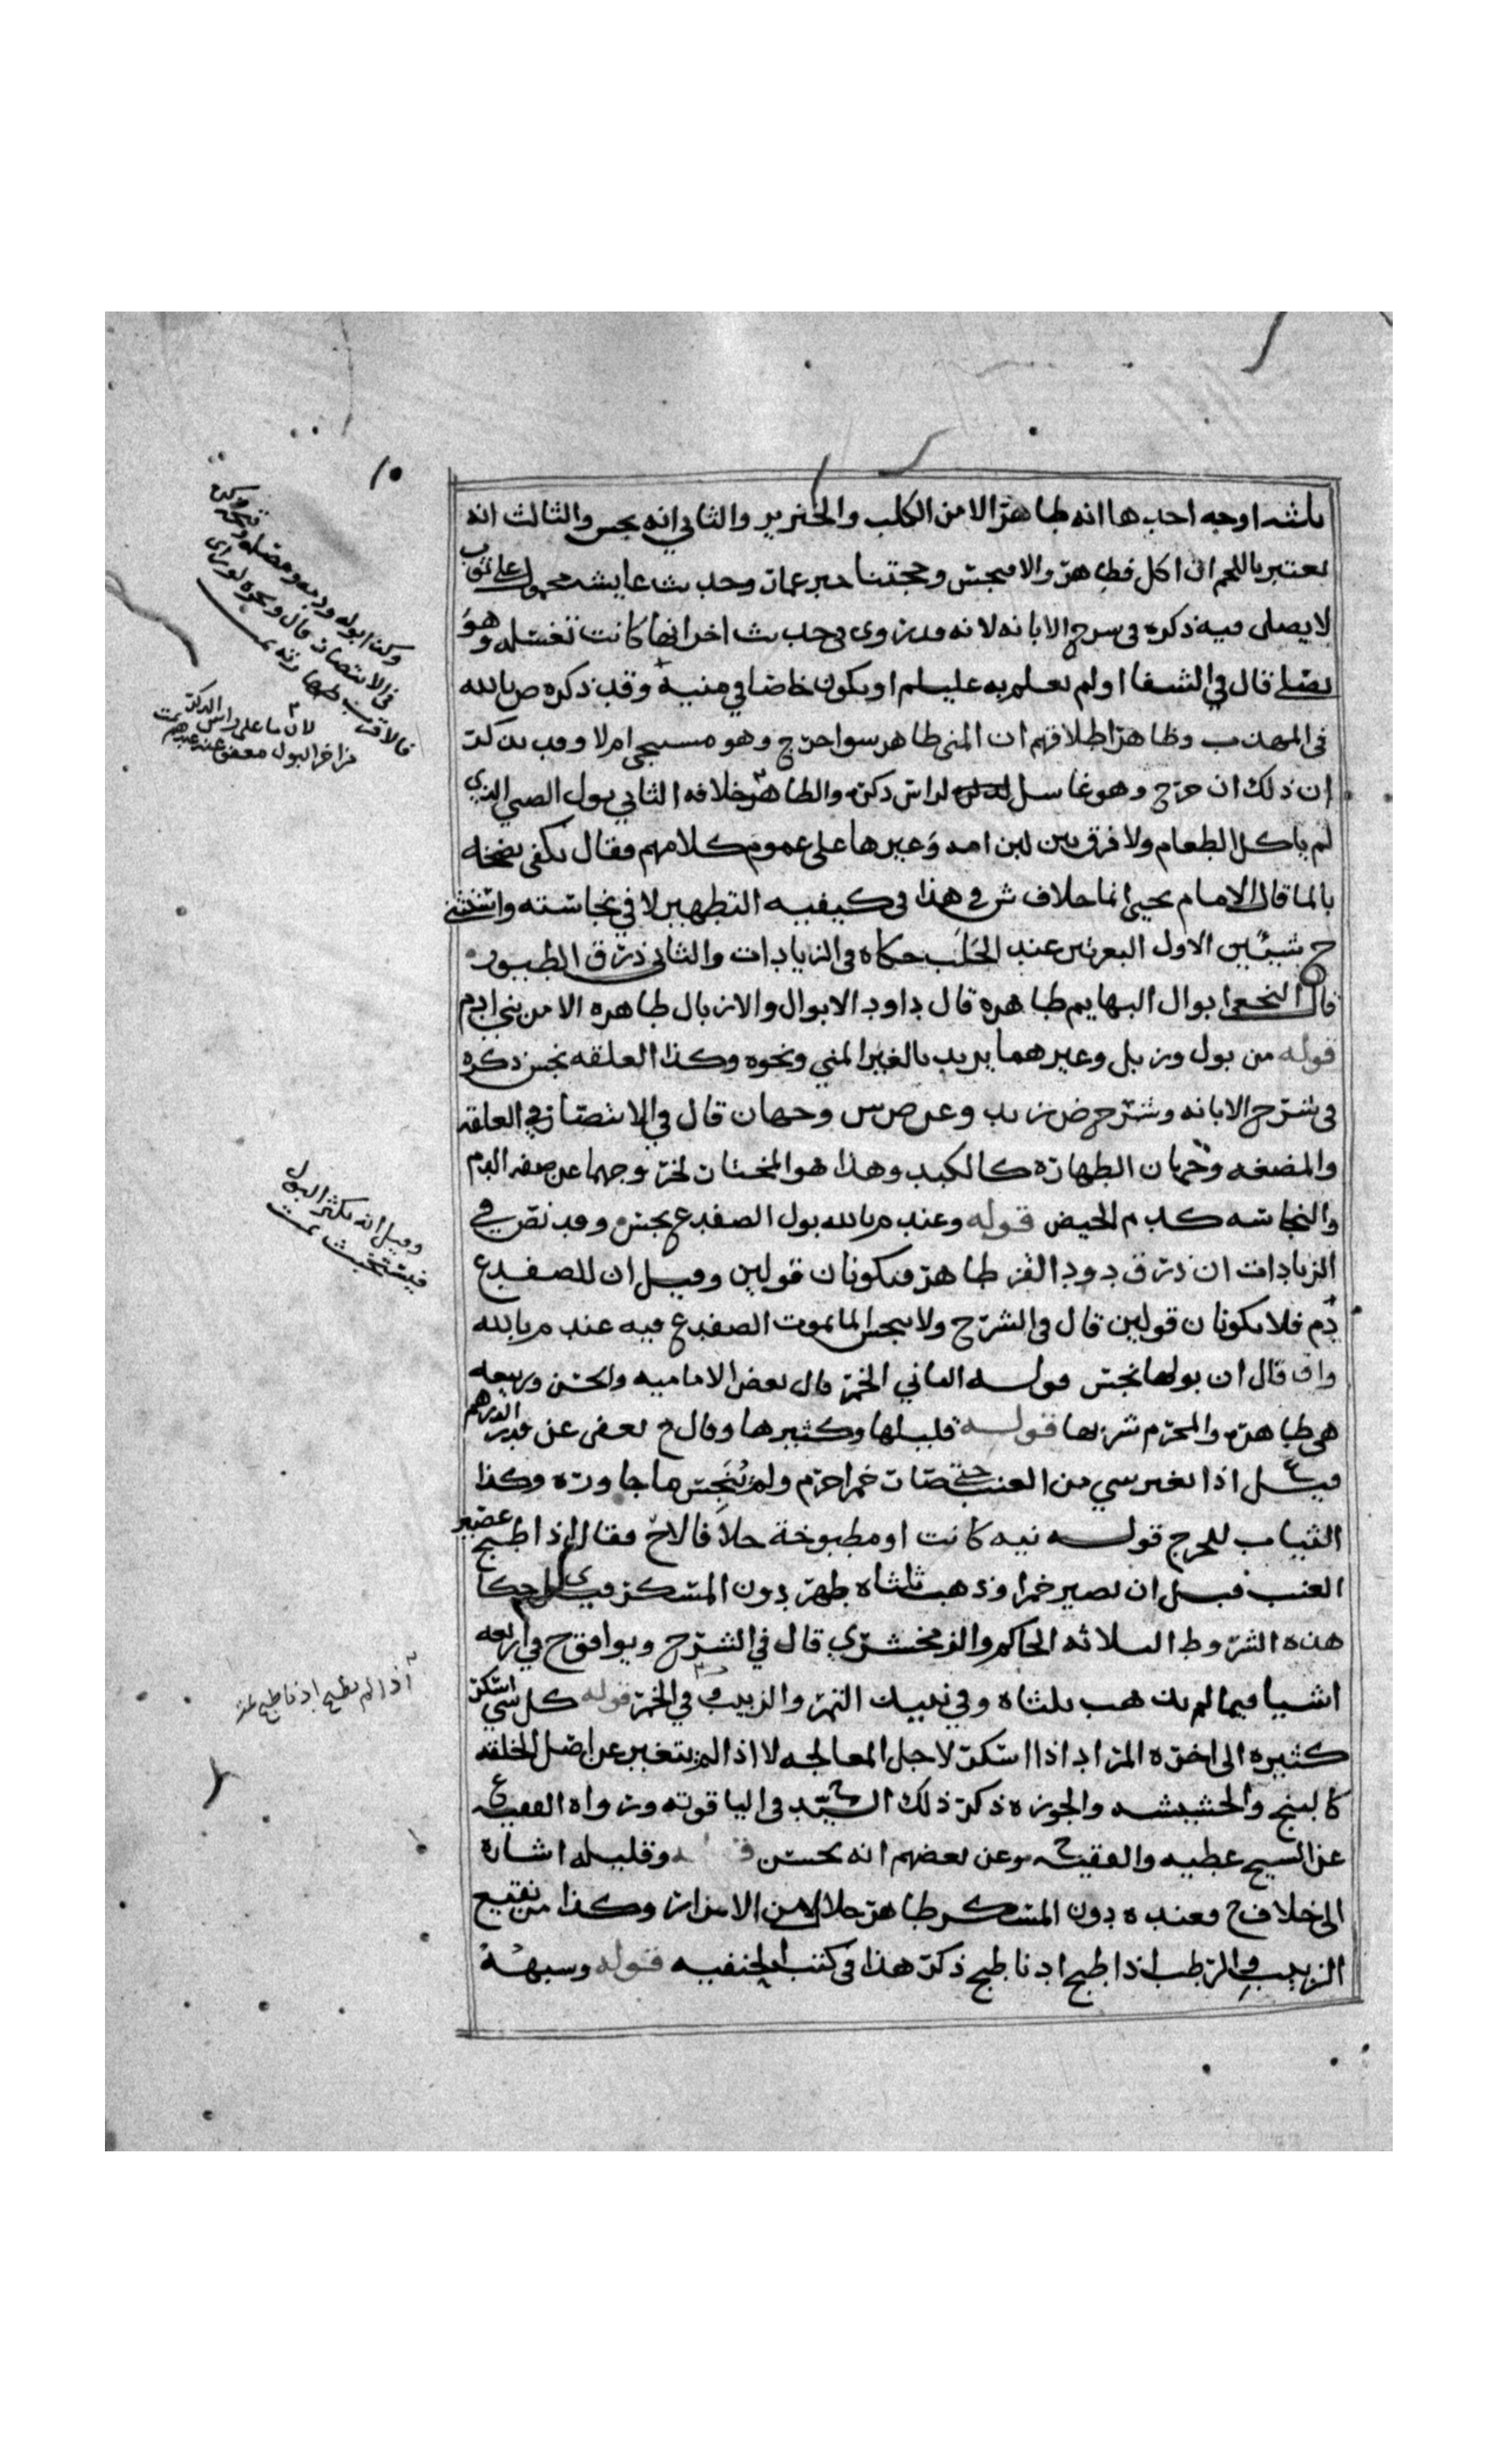 ثلثه اوجه احدها انه طاهر الا من الكلب والخنزير والثاني انه نجس والثالث انه
يعتبر باللحم ان اكل فطاهر والا فنجس وحجتنا خبر عمار وحديث عايشه محمول على ثوب
لا يصلى فيه ذكره في شرح الابانه لانه قد روي في حديث اخر انها كانت تغسله وهو
يصلي قال في الشفا او لم يعلم به عليلم او يكون خاصا في منيه وقد ذكره ص بالله
في المهذب وظاهر اطلاقهم ان المني طاهر سوا خرج وهو مستجمر ام لا وقد
ان ذلك ان خرج وهو غاسل لراس ذكره والظاهر خلافه الثاني بول الصبي الذي
لم ياكل الطعام ولا فرق بين لبن امه وغيرها على عموم كلامهم فقال يكفي نضحه
بالما قال الامام يحيى انما خلاف ش في هذا في كيفيه التطهير لا في نجاسته واستثنى
ح شيئين الاول البعرتين عند الحلب حكاه في الزيادات والثاني ذرق الطيور
قال النخعي ابوال البهايم طاهره قال داود الابوال والازبال طاهره الا من بني ادم
قوله من بول وزبل وغيرهما يريد بالغير المني ونحوه وكذا العلقه نجس ذكره
في شرح الابانه وشرح ض زيد وعن ص ش وجهان قال في الانتصار في العلقه
والمضغه وجهان الطهاره كالكبد وهذا هو المختار لخروجهما عن صفه الدم
والنجاسه كدم الحيض قوله وعند م بالله بول الضفدع نجس وقد نص في
الزيادات ان ذرق دود القز طاهر فيكونان قولين وقيل ان للضفدع
دم فلا يكونان قولين قال في الشرح ولا ينجس الما بموت الضفدع فيه عند م بالله
وان قال ان بولها نجس قوله الثاني الخمر قال بعض الاماميه والحسن وربيعه
هي طاهره والمحرم شربها قوله قليلها وكثيرها وقال ح يعفى عن قدر الدرهم
قيل ع اذا تغير شي من العنب حتى صار خمرا حرم ولم ينجس ما جاوره وكذا
الثياب للحرج قوله نيه كانت او مطبوخة خلافا لاح فقال اذا طبخ عصير
العنب قبل ان يصير خمرا وذهب ثلثاه طهر دون المسكر
هذه الشروط الثلاثه الحاكم والزمخشري قال في الشرح ويوافق ح في اربعه
اشيا فيما لم يذهب ثلثاه وفي نبيذ التمر والزبيب وفي الخمر قوله كل شي اسكر
كثيره الى اخره المراد اذا اسكر لاجل المعالجه لا اذا لم يتغير عن اصل الخلقه
كالبنج والحشيشه والجوزه ذكر ذلك السيد ح في الياقوته ورواه الفقيه ع
عن الشيخ عطيه والفقيه ح وعن بعضهم انه نجس قوله وقليله اشاره
الى خلاف ح فعنده دون المسكر طاهر حلال من الامزار وكذا من نقيع
الزبيب والرطب اذا طبخ ادنا طبخ ذكر هذا في كتب الحنفيه قوله وشبهه
١٥
وكذا بوله ودمه
في الانتصار قال ونحوه
فالاقرب طهارته تمت
لان ما على راس الذكر
من اخر البول معفو عنه عندهم تمت
وقيل انه يكثر البول
فيستخبث تمت
اذا لم يطبخ ادنا طبخ